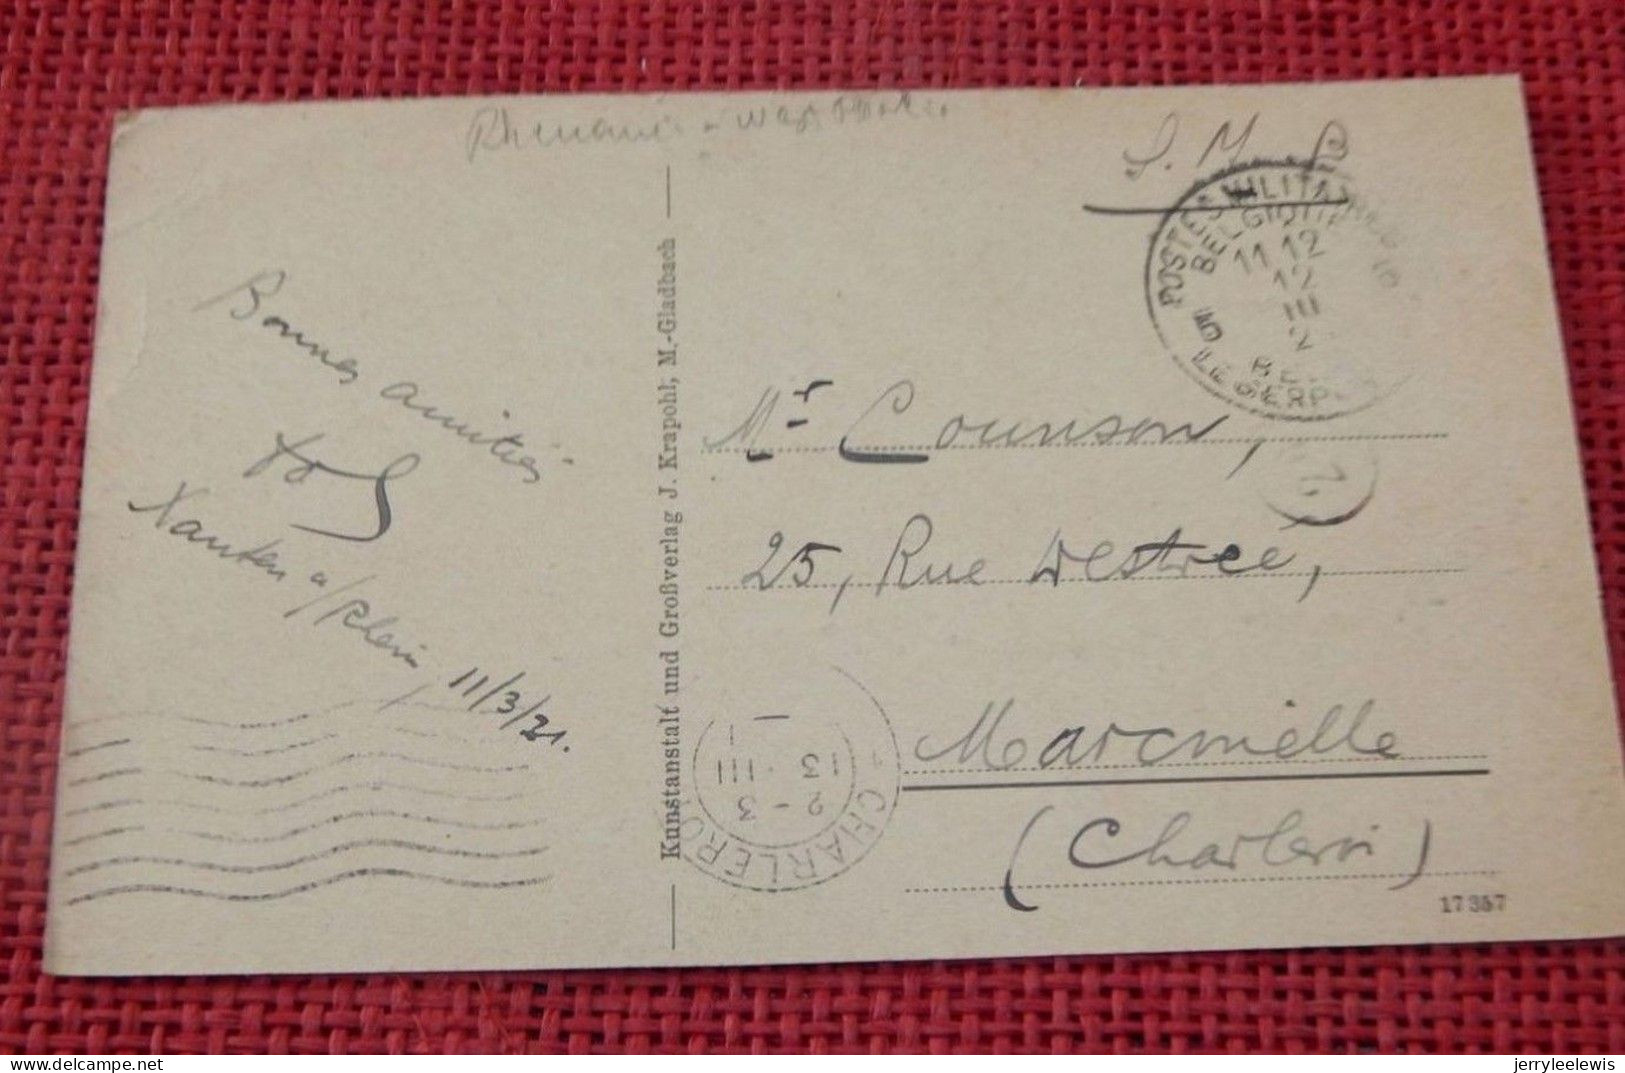 Rhenanie
S. M.
POSTES MILITAIRES
BELGIQUE
11 12
12
III
2
5
LEGERP
Bonnes amitiés
Xanten a/Rhein
11/3/21.
Kunstanstalt und Großverlag J. Krapohl; M.-Gladbach
Mr Counson,
1.
25, Rue Destrée,
Marcinelle
(Charleroi)
CHARLEROI
2 - 3
13 · III
1
17357
jerryleelewis delcampe.net